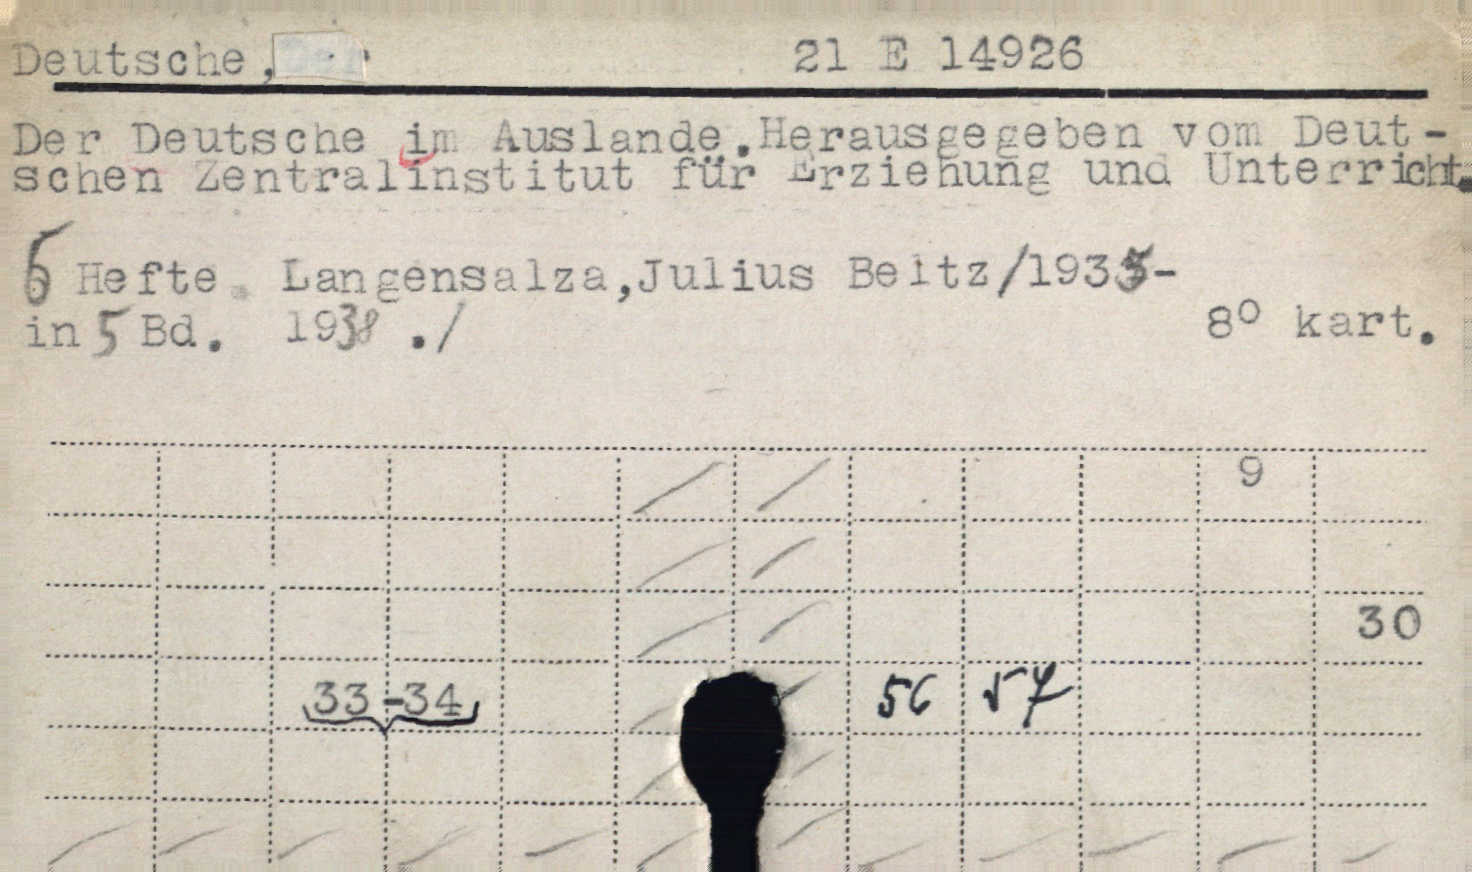 Deutsche, Der 21 E 14926
Der Deutsche im Auslande.Herausgegeben vom Deut-
schen Zentralinstitut für Erziehung und Unterricht.
6 Hefte. Langensalza,Julius Beltz/1935-
in 5 Bd. 1938 ./ 8° kart.
9
30
33-34 56 57